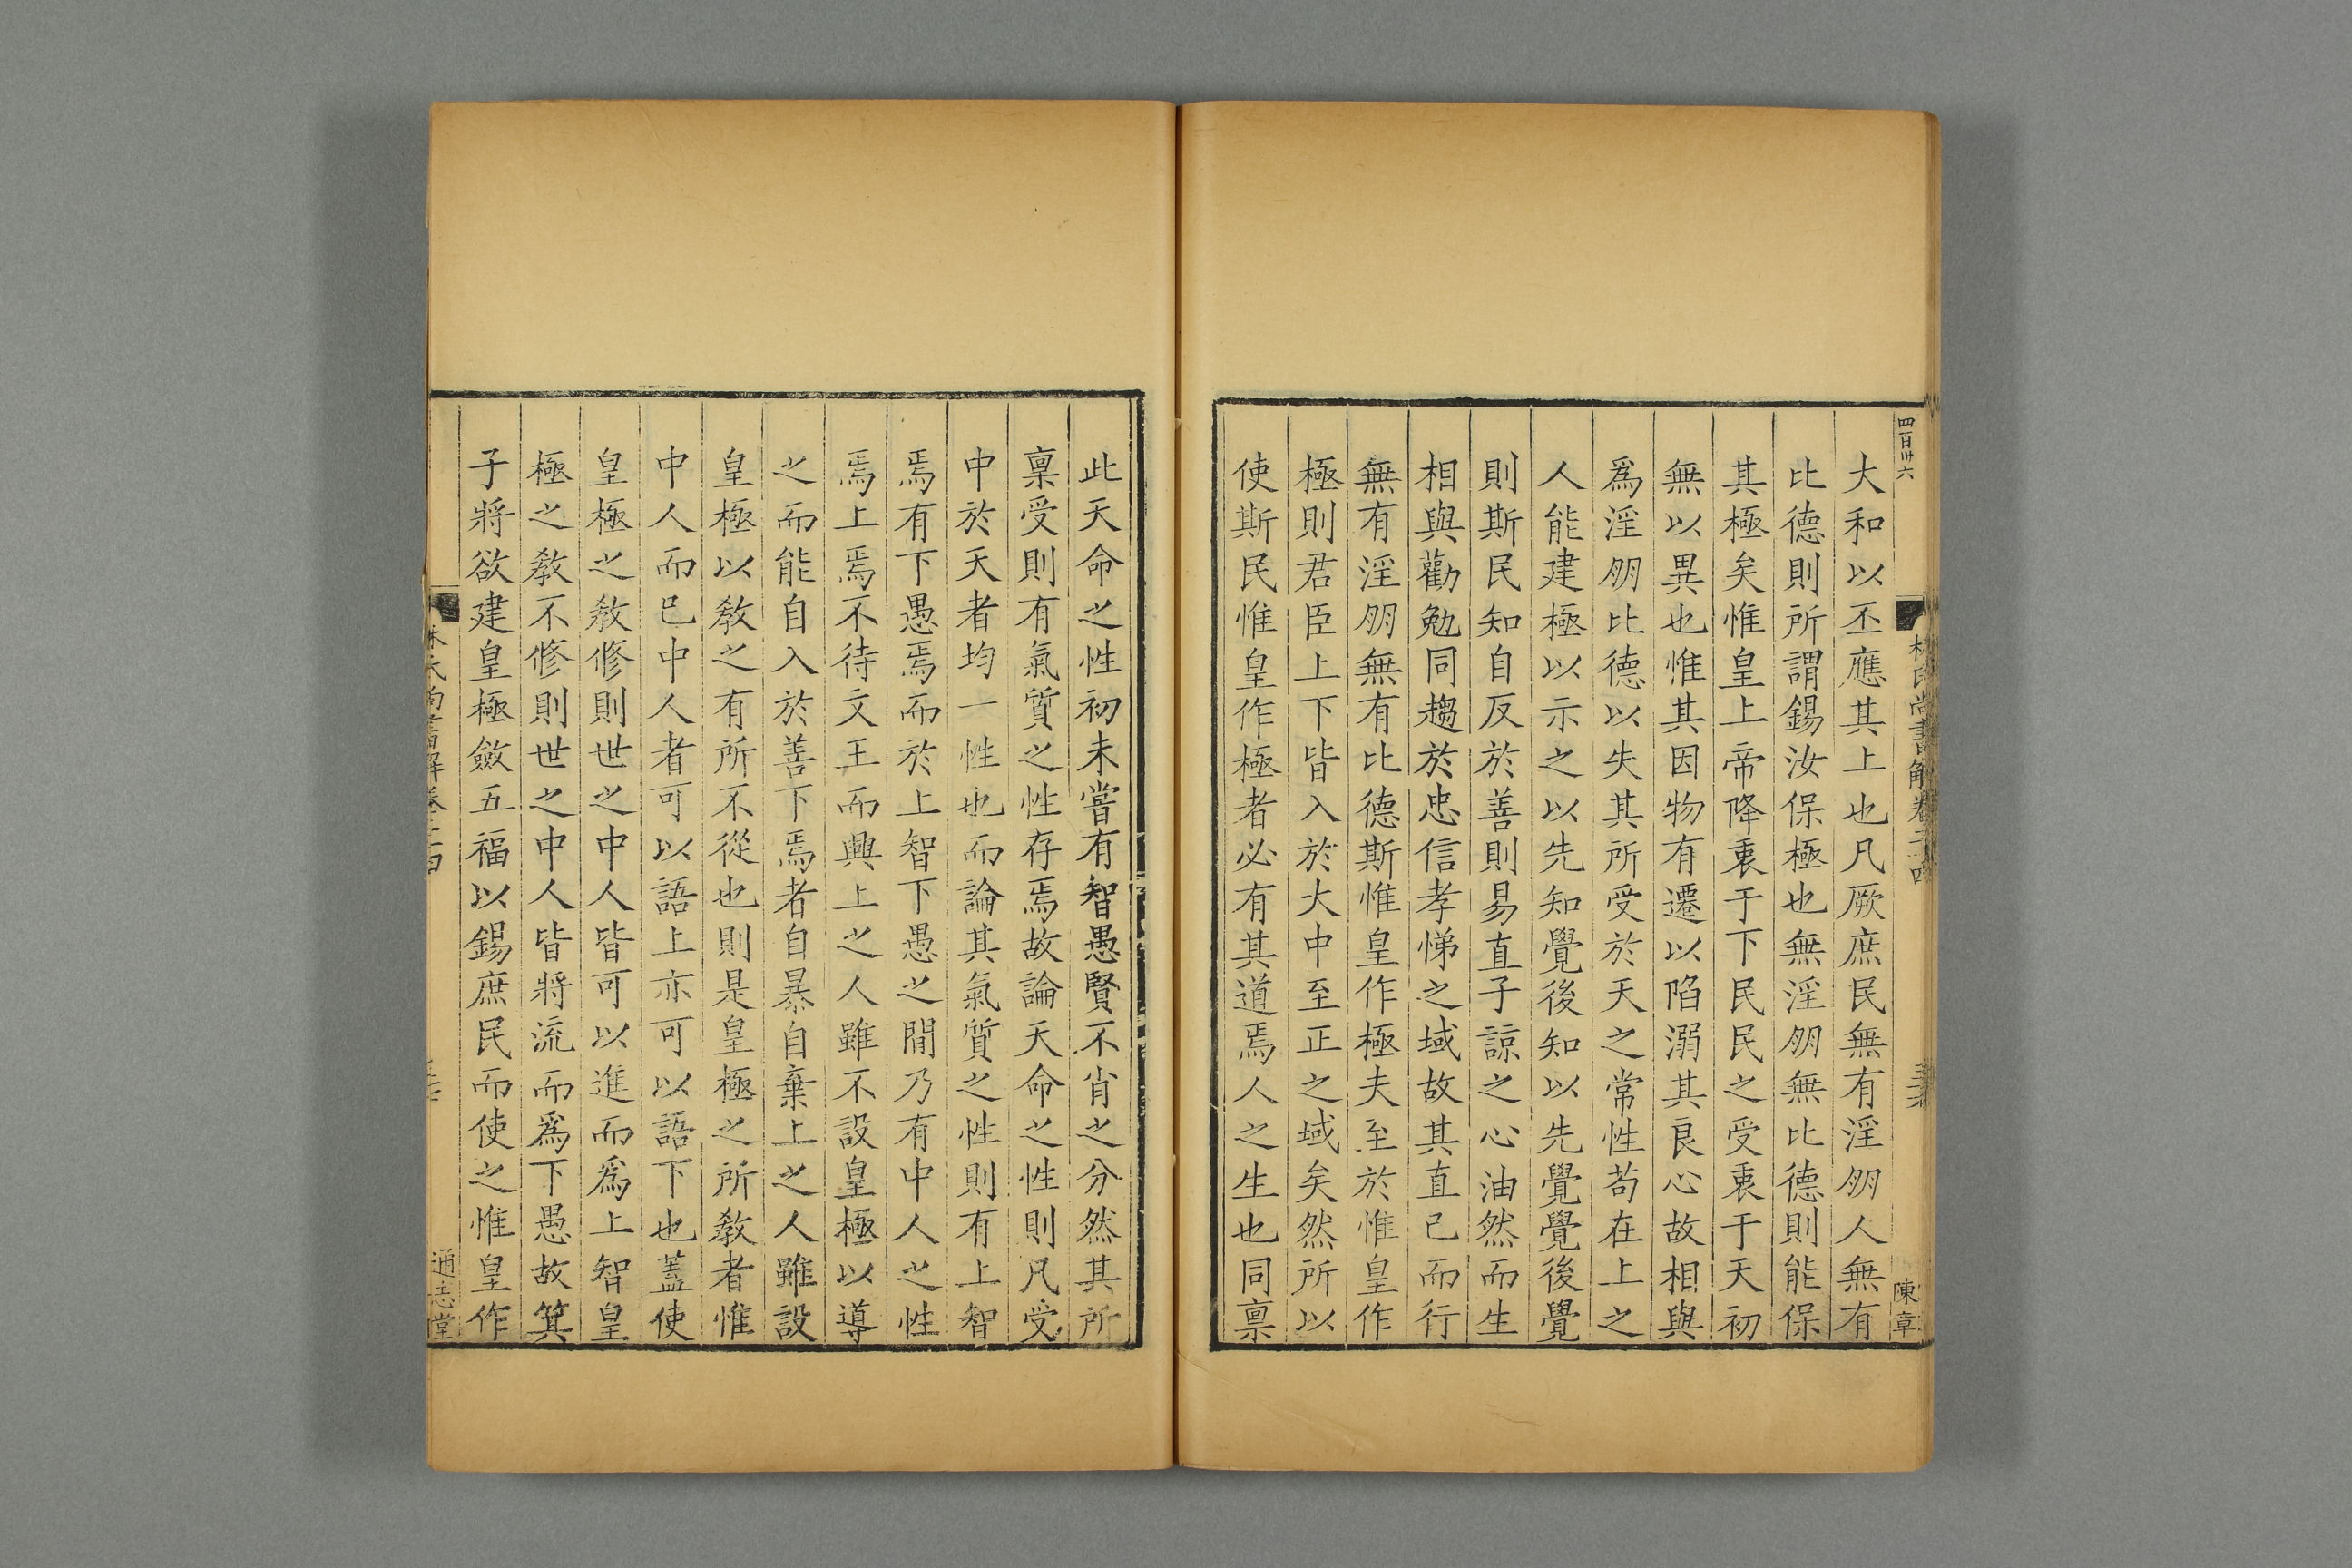 四百卅六
林氏尚書解卷二十四
陳章
大和以丕應其上也凡厥庶民無有淫朋人無有
比德則所謂錫汝保極也無淫朋無比德則能保
其極矣惟皇上帝降衷于下民民之受衷于天初
無以異也惟其因物有遷以陷溺其良心故相與
爲淫朋比德以失其所受於天之常性苟在上之
人能建極以示之以先知覺後知以先覺覺後覺
則斯民知自反於善則易直子諒之心油然而生
相與勸勉同趨於忠信孝悌之域故其直己而行
無有淫朋無有比德斯惟皇作極夫至於惟皇作
極則君臣上下皆入於大中至正之域矣然所以
使斯民惟皇作極者必有其道焉人之生也同禀
此天命之性初未嘗有智愚賢不肖之分然其所
稟受則有氣質之性存焉故論天命之性則凡受
中於天者均一性也而論其氣質之性則有上智
焉有下愚焉而於上智下愚之間乃有中人之性
焉上焉不待文王而興上之人雖不設皇極以導
之而能自入於善下焉者自暴自棄上之人雖設
皇極以敎之有所不從也則是皇極之所敎者惟
中人而已中人者可以語上亦可以語下也蓋使
皇極之敎修則世之中人皆可以進而爲上智皇
極之敎不修則世之中人皆將流而爲下愚故箕
子將欲建皇極斂五福以錫庶民而使之惟皇作
林氏尚書解卷二十四
通志堂